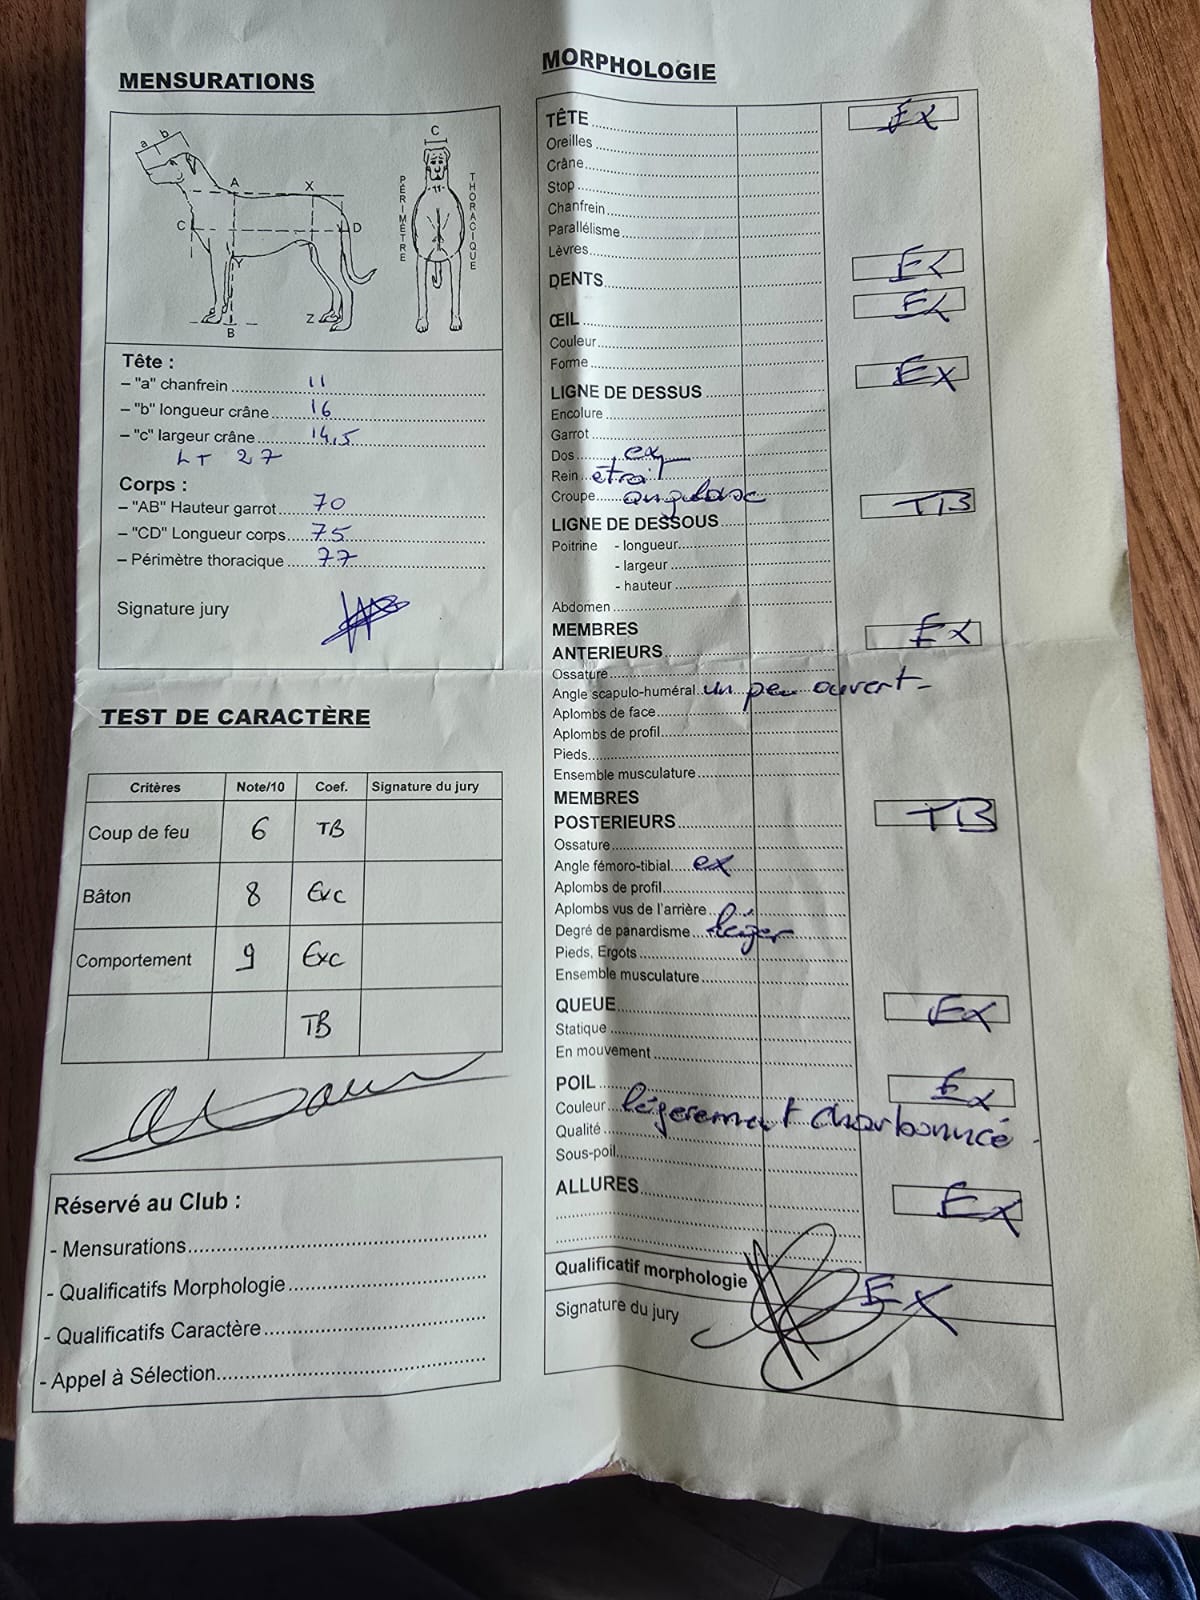 MENSURATIONS
a b
C
A X
C D
Y
Z
B
PÉRIMÈTRE
THORACIQUE
Tête :
– "a" chanfrein 11
– "b" longueur crâne 16
– "c" largeur crâne 14,5
LT 27
Corps :
– "AB" Hauteur garrot 70
– "CD" Longueur corps 75
– Périmètre thoracique 77
Signature jury
TEST DE CARACTÈRE
Critères Note/10 Coef. Signature du jury
Coup de feu 6 TB
Bâton 8 Exc
Comportement 9 Exc
TB
Réservé au Club :
- Mensurations
- Qualificatifs Morphologie
- Qualificatifs Caractère
- Appel à Sélection
MORPHOLOGIE
TÊTE Ex
Oreilles
Crâne
Stop
Chanfrein
Parallélisme
Lèvres
DENTS Ex
ŒIL Ex
Couleur
Forme
LIGNE DE DESSUS Ex
Encolure
Garrot
Dos ex
Rein étroit
Croupe
LIGNE DE DESSOUS TB
Poitrine - longueur
- largeur
- hauteur
Abdomen
MEMBRES
ANTERIEURS Ex
Ossature
Angle scapulo-huméral un peu ouvert
Aplombs de face
Aplombs de profil
Pieds
Ensemble musculature
MEMBRES
POSTERIEURS TB
Ossature
Angle fémoro-tibial ex
Aplombs de profil
Aplombs vus de l'arrière
Degré de panardisme léger
Pieds, Ergots
Ensemble musculature
QUEUE Ex
Statique
En mouvement
POIL Ex
Couleur légerement charbonné
Qualité
Sous-poil
ALLURES Ex
Qualificatif morphologie Ex
Signature du jury